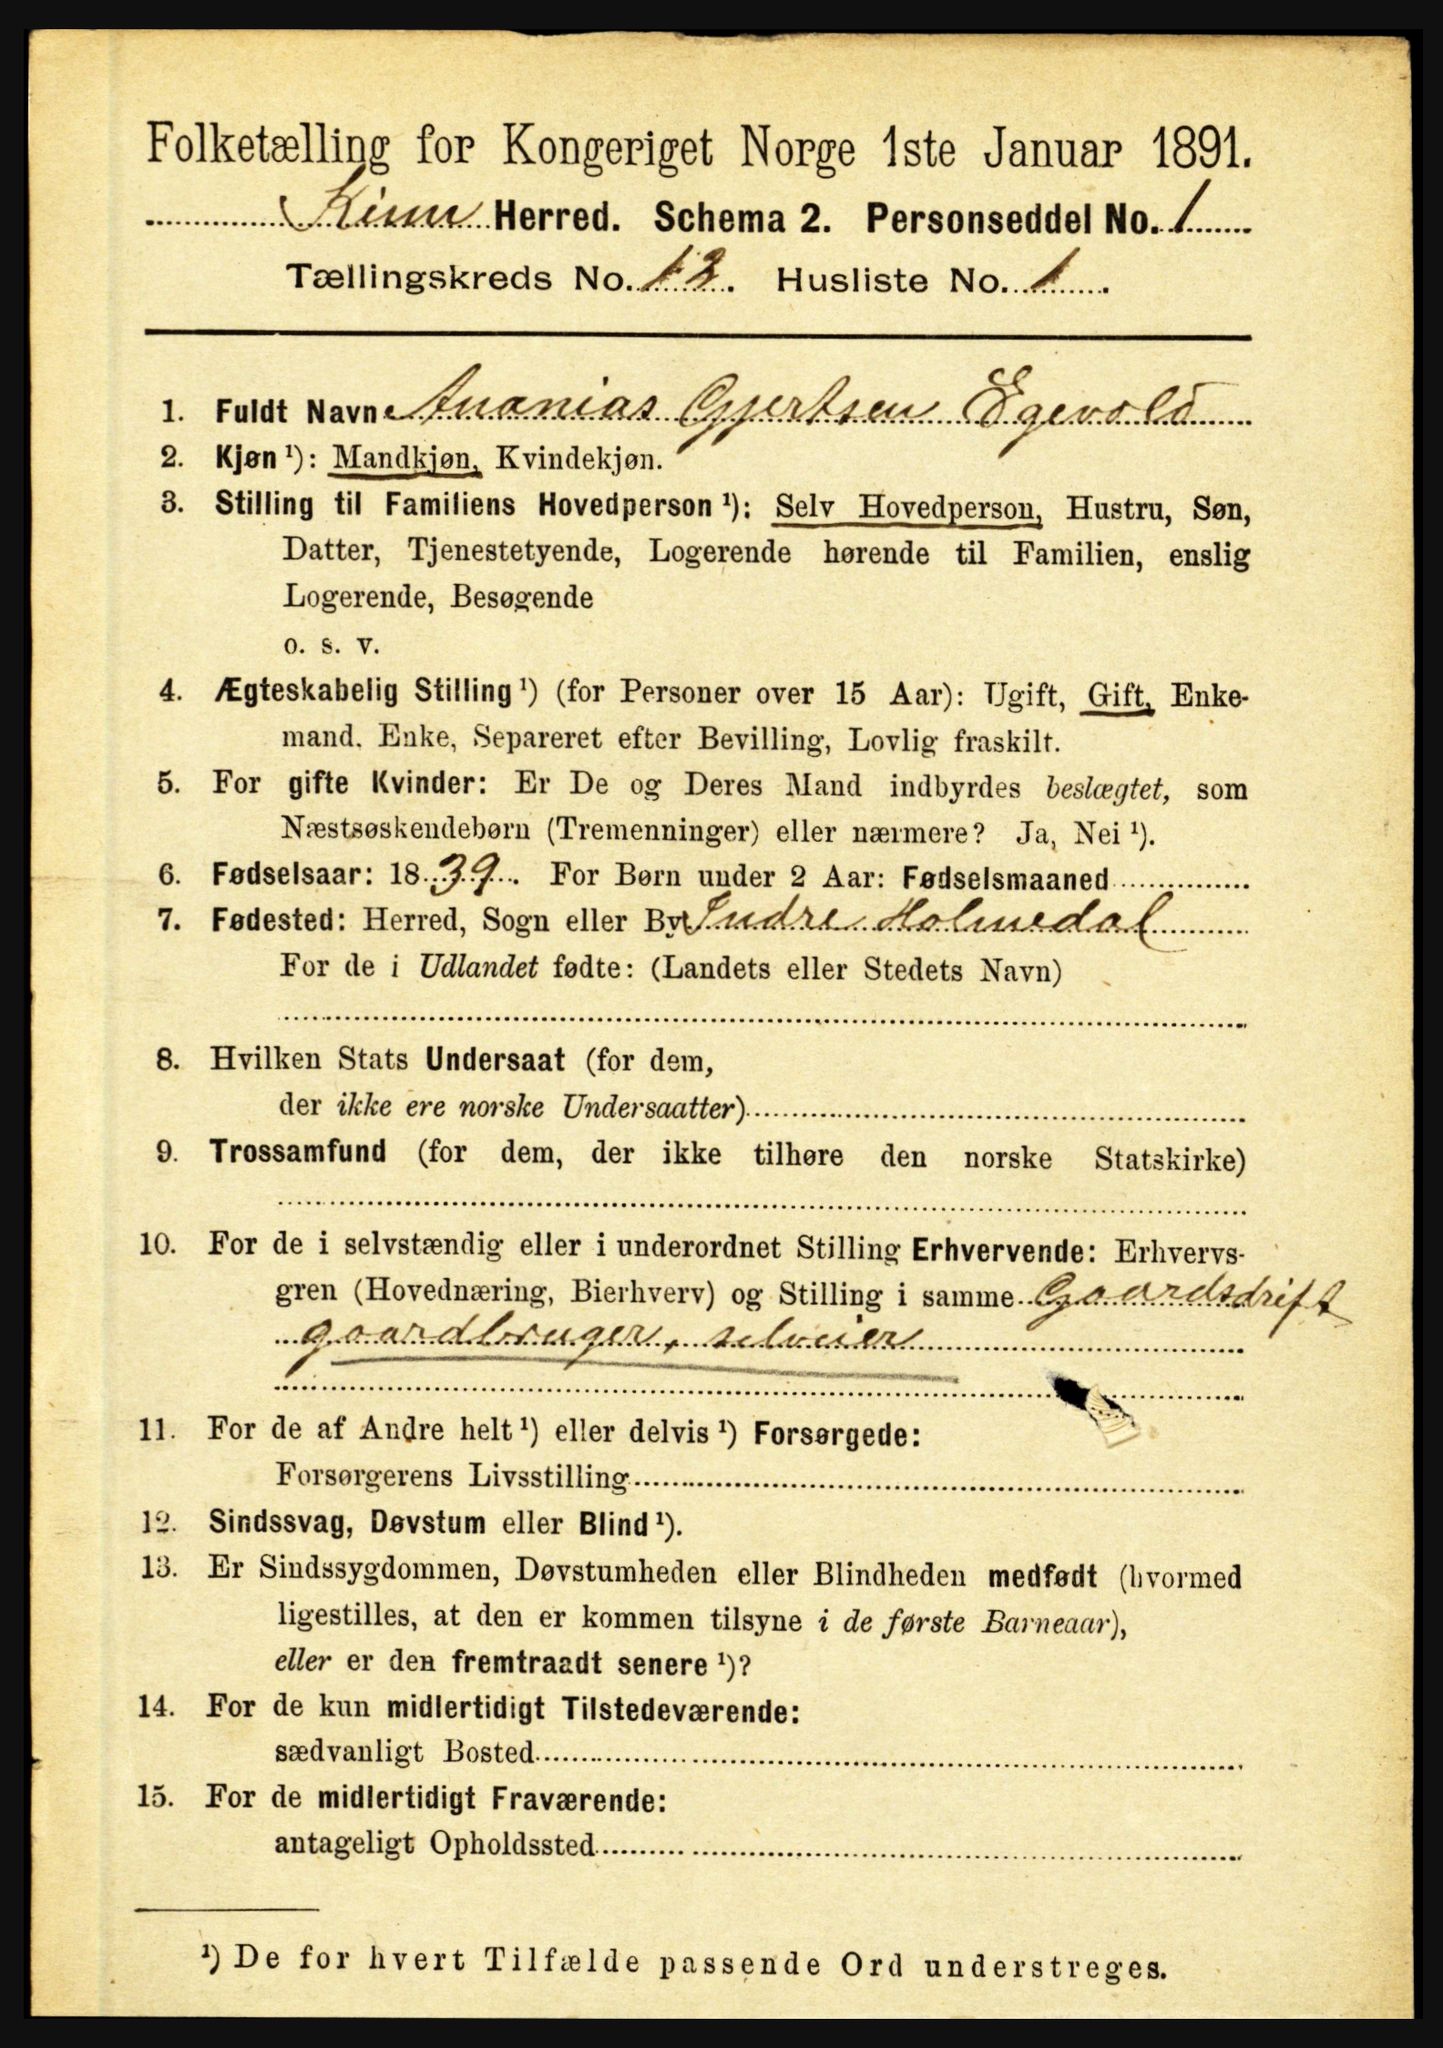 Folketælling for Kongeriget Norge 1ste Januar 1891.
Kinn Herred. Schema 2. Personseddel No. 1
Tællingskreds No. 12. Husliste No. 1.
1. Fuldt Navn Ananias Gjertsen Egevold
2. Kjøn ¹): Mandkjøn, Kvindekjøn.
3. Stilling til Familiens Hovedperson ¹): Selv Hovedperson, Hustru, Søn,
Datter, Tjenestetyende, Logerende hørende til Familien, enslig
Logerende, Besøgende
o. s. v.
4. Ægteskabelig Stilling ¹) (for Personer over 15 Aar): Ugift, Gift, Enke-
mand. Enke, Separeret efter Bevilling, Lovlig fraskilt.
5. For gifte Kvinder: Er De og Deres Mand indbyrdes beslægtet, som
Næstsøskendebørn (Tremenninger) eller nærmere? Ja, Nei ¹).
6. Fødselsaar: 1839. For Børn under 2 Aar: Fødselsmaaned
7. Fødested: Herred, Sogn eller By Indre Holmedal
For de i Udlandet fødte: (Landets eller Stedets Navn)
8. Hvilken Stats Undersaat (for dem,
der ikke ere norske Undersaatter)
9. Trossamfund (for dem, der ikke tilhøre den norske Statskirke)
10. For de i selvstændig eller i underordnet Stilling Erhvervende: Erhvervs-
gren (Hovednæring, Bierhverv) og Stilling i samme Gaardsdrift
gaardbruger, selveier
11. For de af Andre helt ¹) eller delvis ¹) Forsørgede:
Forsørgerens Livsstilling
12. Sindssvag, Døvstum eller Blind ¹).
13. Er Sindssygdommen, Døvstumheden eller Blindheden medfødt (hvormed
ligestilles, at den er kommen tilsyne i de første Barneaar),
eller er den fremtraadt senere ¹)?
14. For de kun midlertidigt Tilstedeværende:
sædvanligt Bosted
15. For de midlertidigt Fraværende:
antageligt Opholdssted
¹) De for hvert Tilfælde passende Ord understreges.